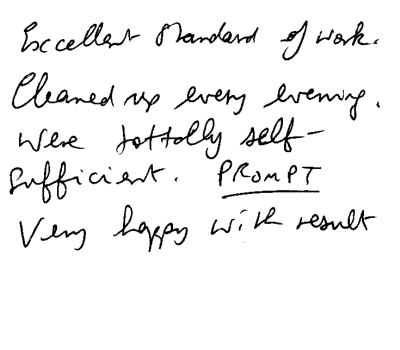 Excellent standard of work.
Cleaned up every evening.
Were tottolly self-
sufficient. PROMPT
Very happy with result